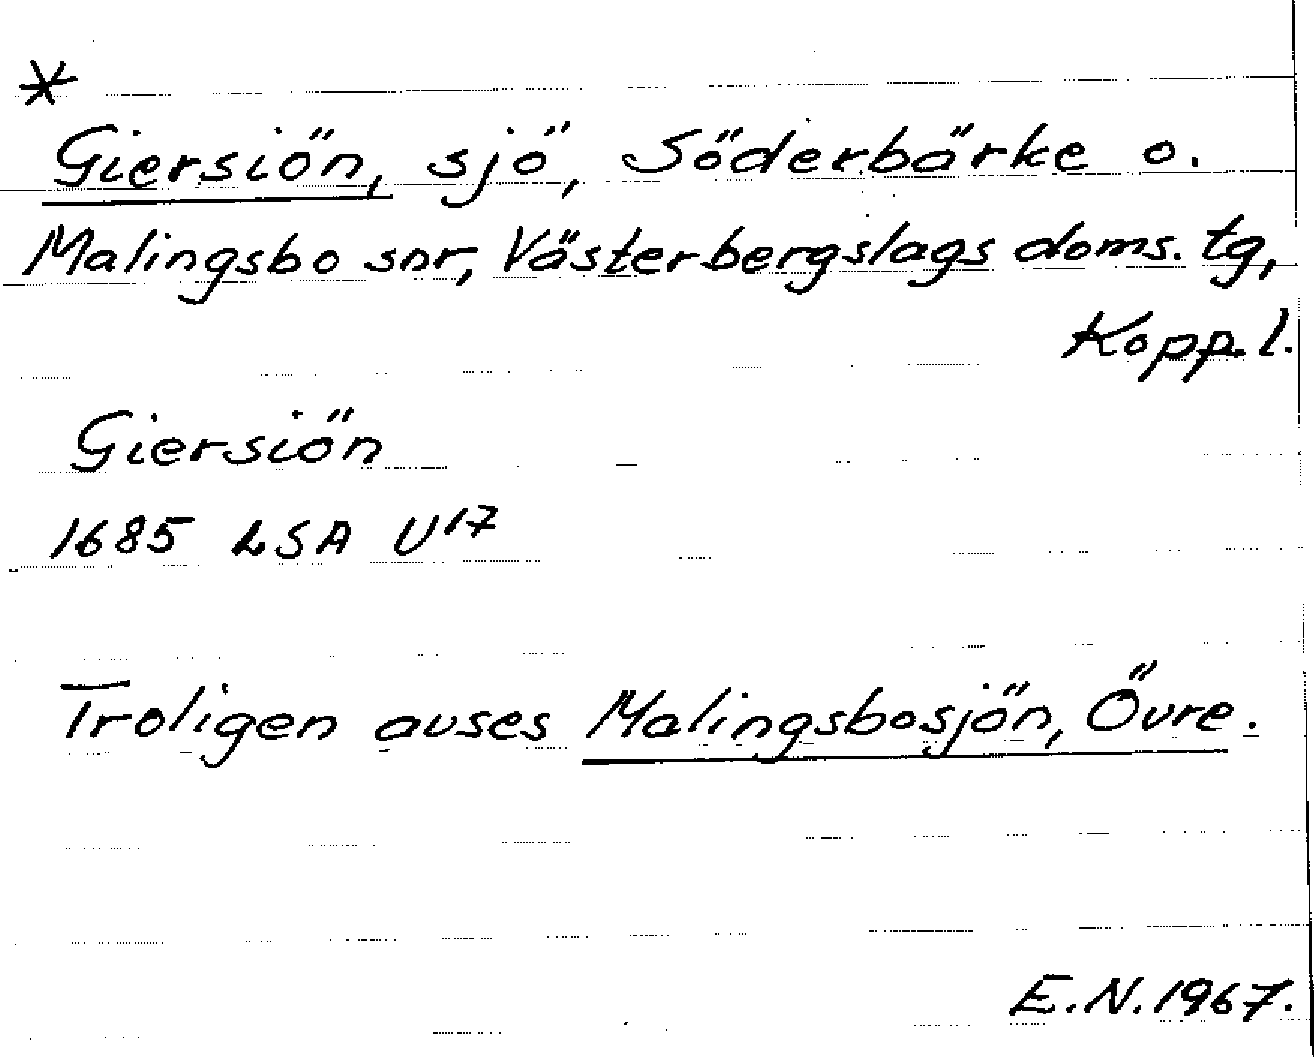 *
Giersiön, sjö, Söderbärke o.
Malingsbo snr, Västerbergslags doms. tg,
Kopp. l.
Giersiön
1685 LSA U17
Troligen avses Malingsbosjön, Övre.
E.N. 1967.